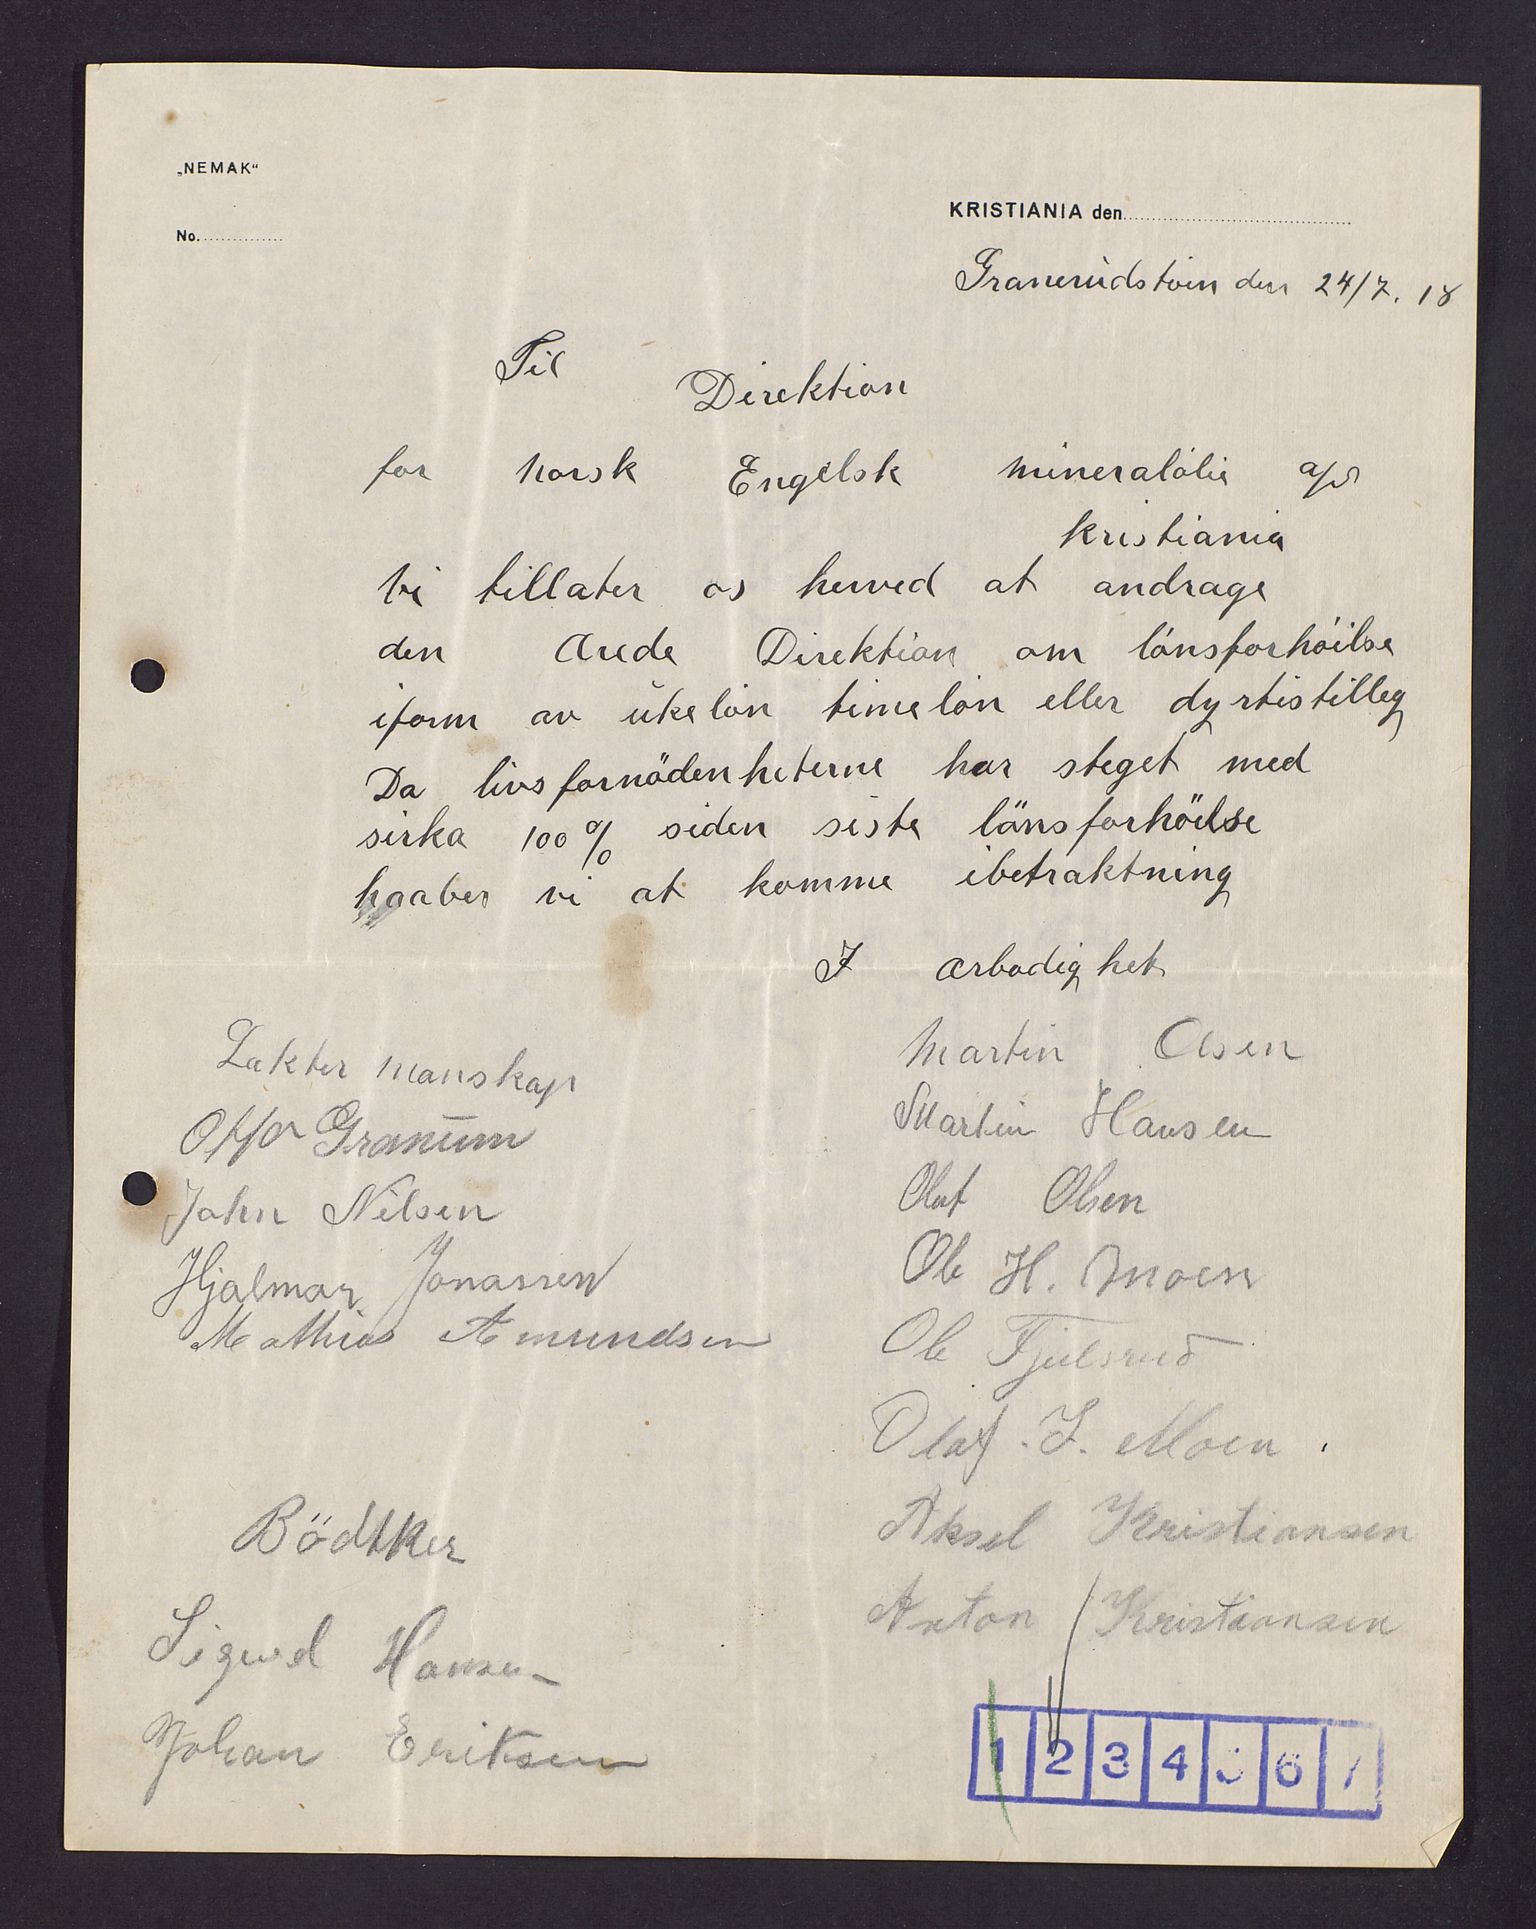 „NEMAK“
No.
KRISTIANIA den
Granerudstöen den 24/7. 18
Til
Direktion
for Norsk Engelsk Mineralölie a/s
Kristiania
Vi tillater os herved at andrage
den ærede Direktion om lönsforhöilse
iform av ukelön timelön eller dyrtistilleg
Da livsfornödenheterne har steget med
sirka 100 % siden siste lönsforhöilse
haaber vi at komme ibetraktning
I ærbodighet
Lakter Manskap
Otto Granum
John Nilsen
Hjalmar Jonassen
Mathias Amundsen
Bödtker
Sigurd Hansen
Johan Eriksen
Martin Olsen
Martin Hansen
Olaf Olsen
Ole H. Moen
Ole Fjelsrud
Olaf. J. Moen.
Aksel Kristiansen
Anton Kristiansen
1 2 3 4 5 6 7